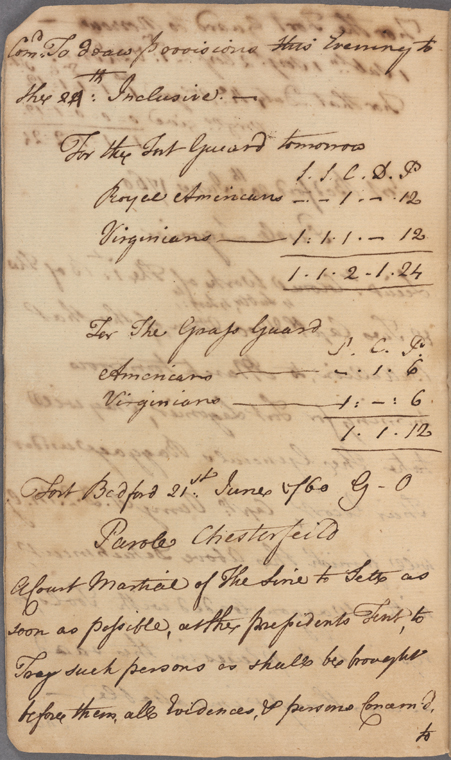 Com.d To draw provisions this Evening to
the 24th: Inclusive. —
For the Fort Guard tomorrow
S. S. C. D. P
Royal Americans - - 1 - 12
Virginians — 1. 1. 1. - 12
1. 1. 2 - 1. 24
For The Grass Guard
S. C. P.
Americans — - . 1. 6
Virginians — 1: -: 6
1. 1. 12
Fort Bedford 21st. June 1760 G - O
Parole Chesterfeild
A Court Martial of the Line to Sett as
soon as possible, at the presidents Tent, to
Tray such persons as shall be brought
before them, all Evidences, & persons Concern'd,
to